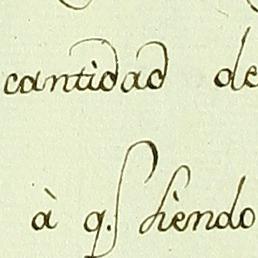 cantidad de
à q. siendo